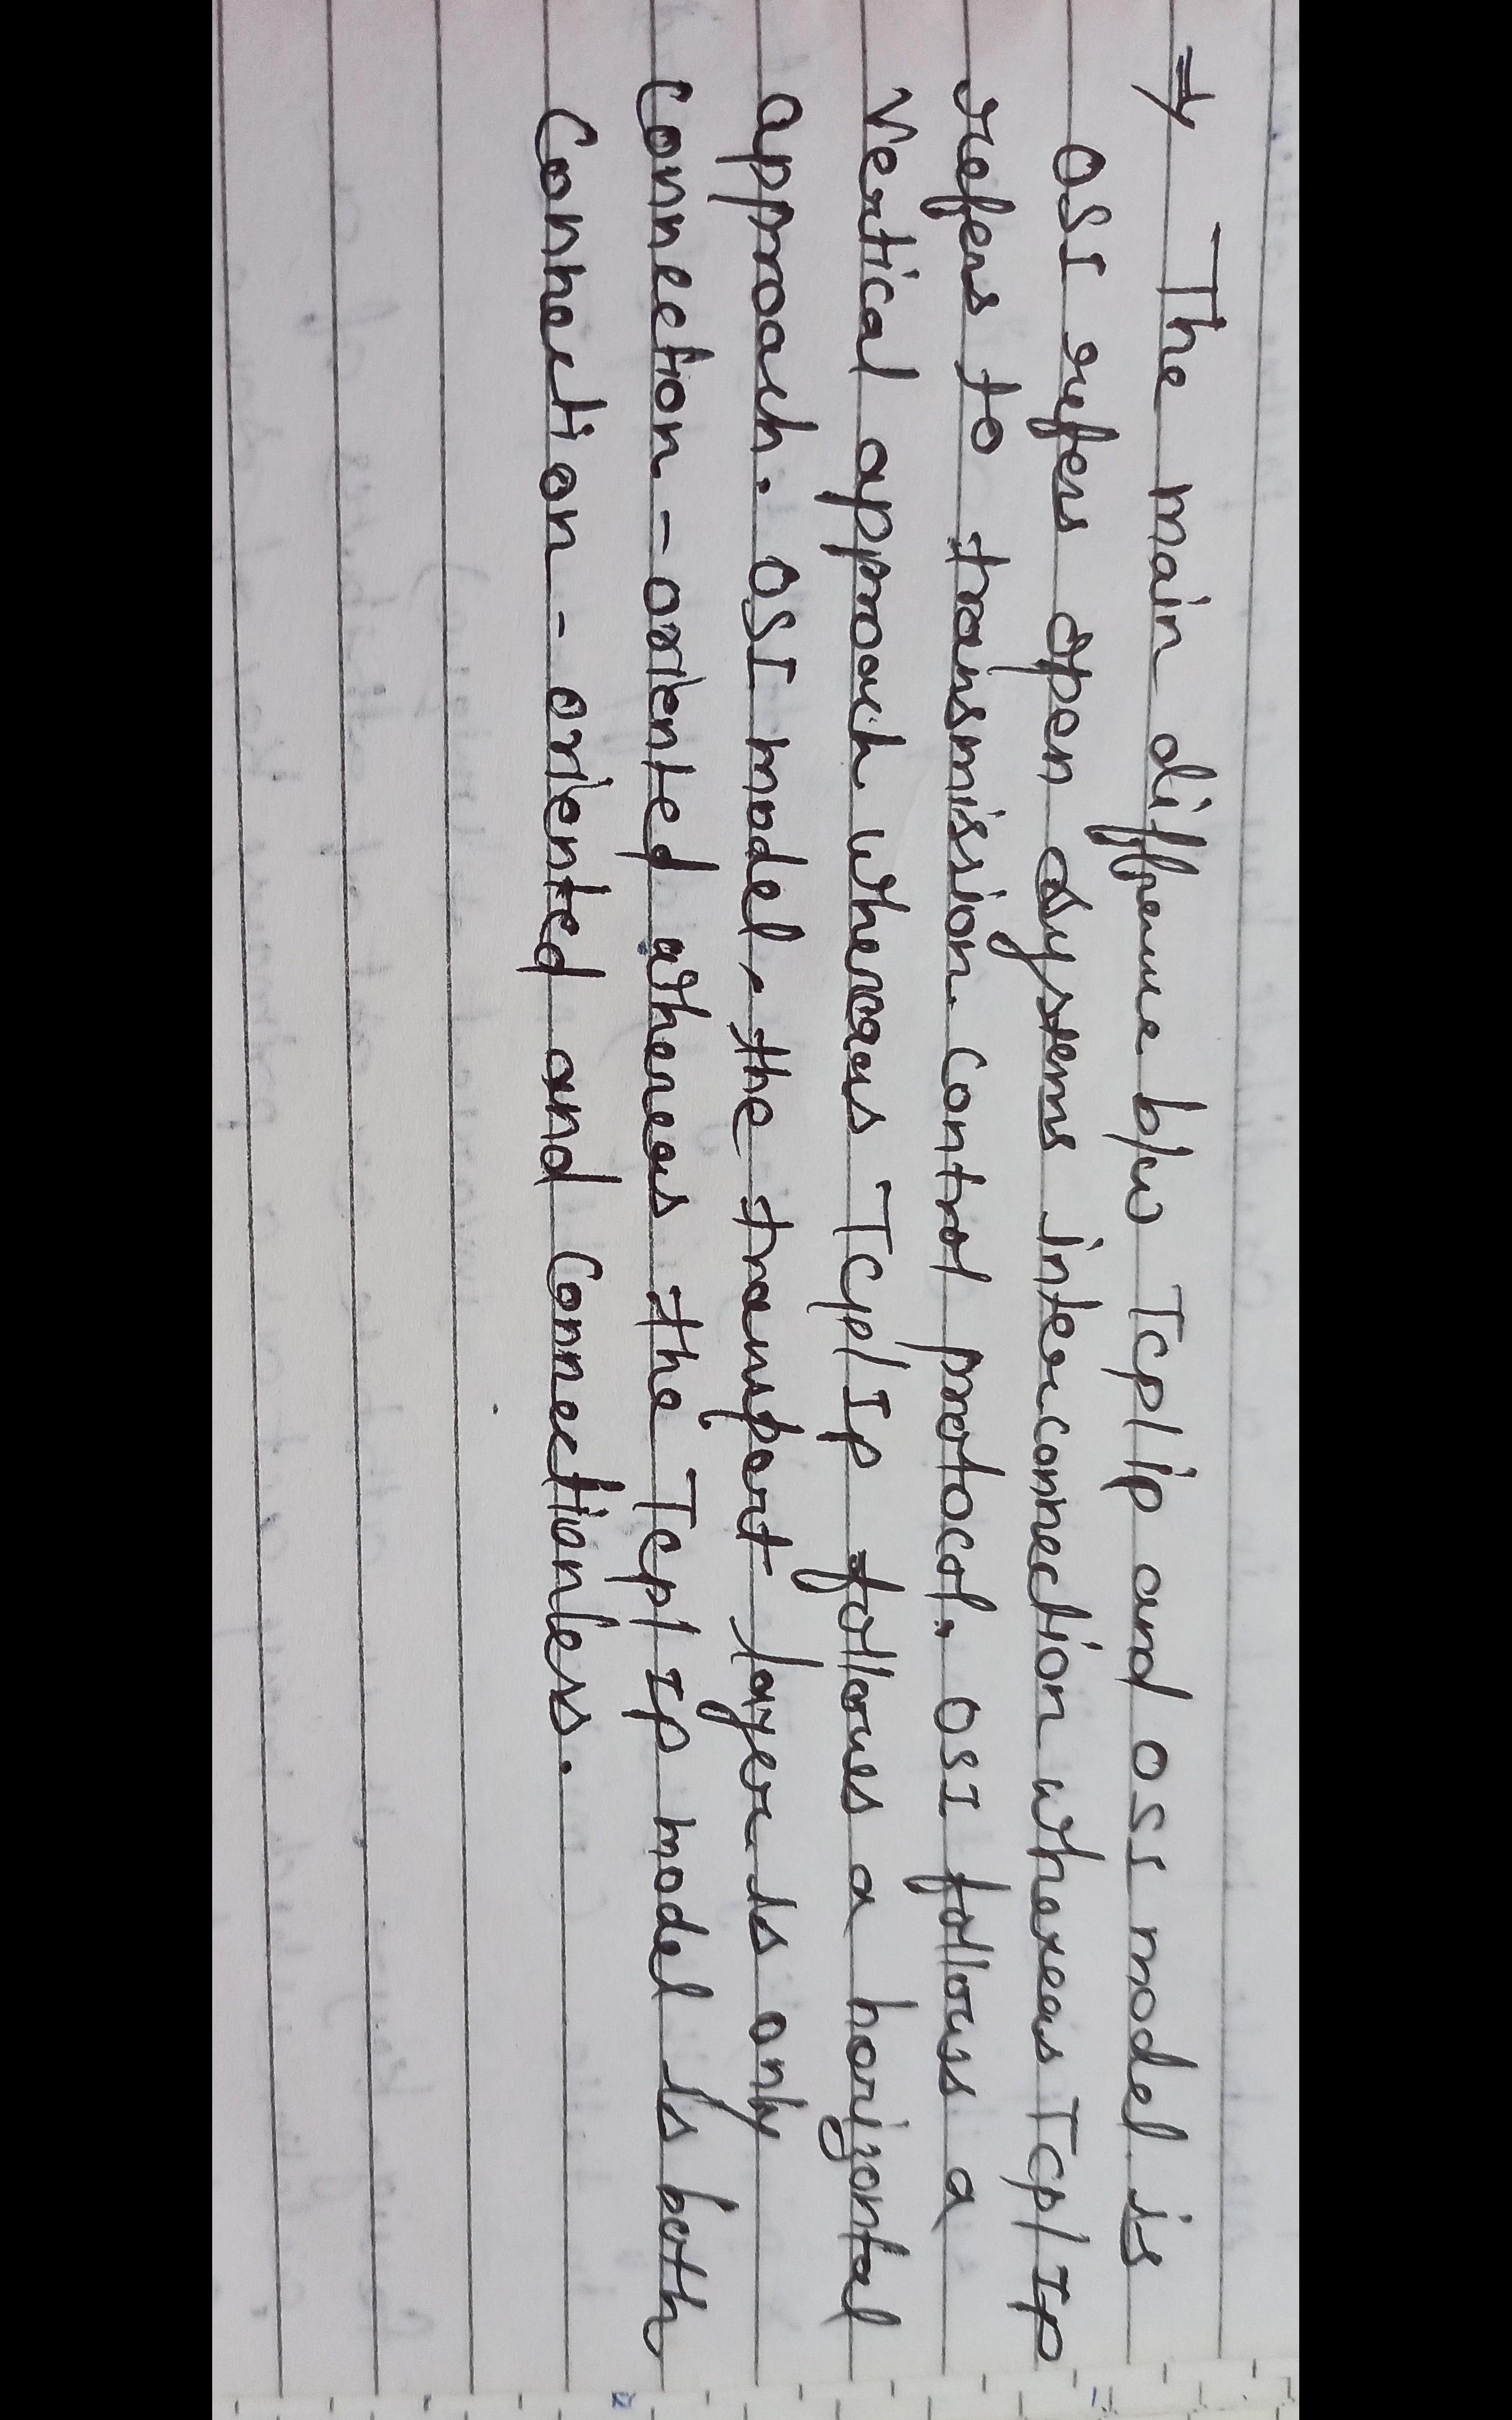 ⇒ The main difference b/w Tcp/ip and OSI model is
OSI refers open systems interconnection whereas Tcp/Ip
refers to transmission control protocol. OSI follows a
Vertical approach whereas Tcp/Ip follows a horizontal
approach. OSI model, the transport layer is only
Connection-oriented whereas the Tcp/Ip model is both
Connection-oriented and Connectionless.